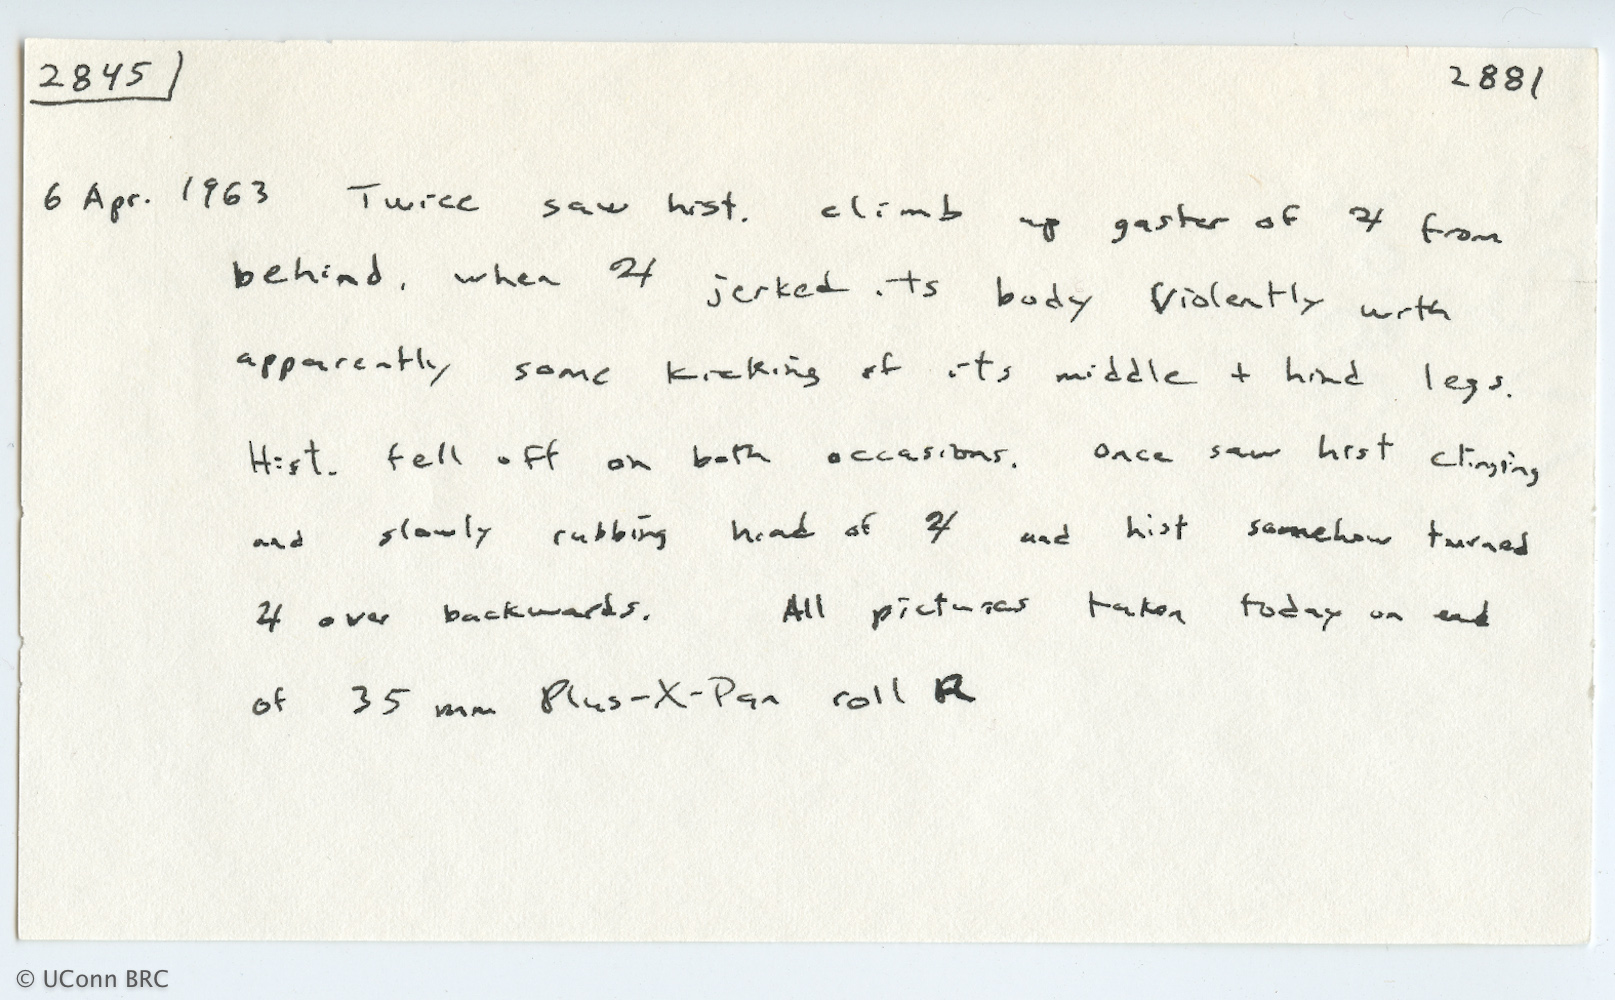 2845 2881
6 Apr. 1963 Twice saw hist. climb up gaster of ♃ from
behind, when ♃ jerked its body violently with
apparently some kicking of its middle + hind legs.
Hist. fell off on both occasions. Once saw hist clinging
and slowly rubbing head of ♃ and hist somehow turned
♃ over backwards. All pictures taken today on end
of 35 mm Plus-X-Pan roll R
© UConn BRC